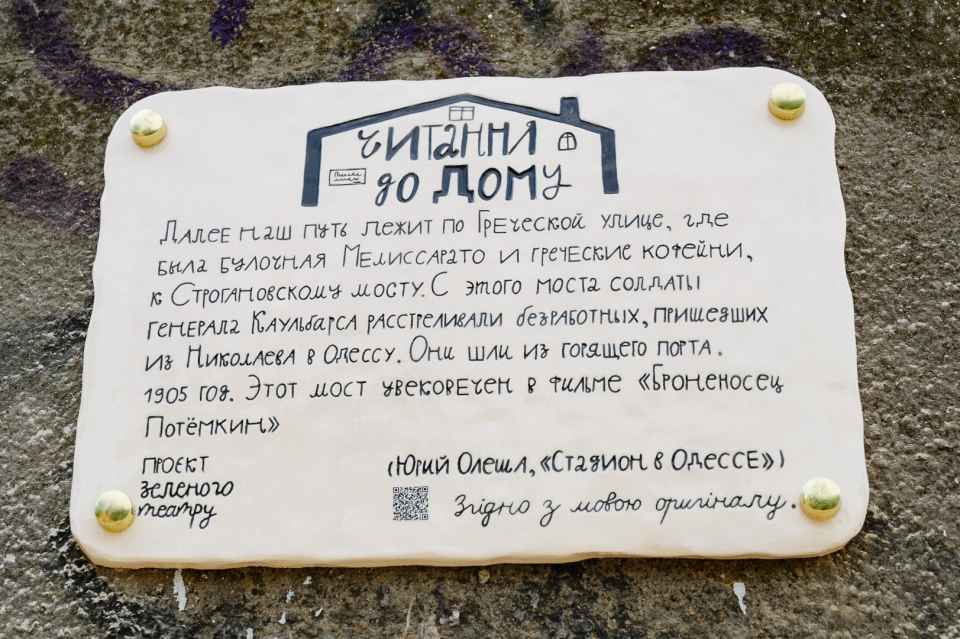 ЧИТАННЯ
ДО ДОМУ
Далее наш путь лежит по Греческой улице, где
была булочная Мелиссарато и греческие кофейни,
к Строгановскому мосту. С этого моста солдаты
генерала Каульбарса расстреливали безработных, пришедших
из Николаева в Одессу. Они шли из горящего порта.
1905 год. Этот мост увековечен в фильме «Броненосец
Потёмкин»
(Юрий Олеша, «Стадион в Одессе»)
проєкт
Зеленого
театру
Згідно з мовою оригіналу.